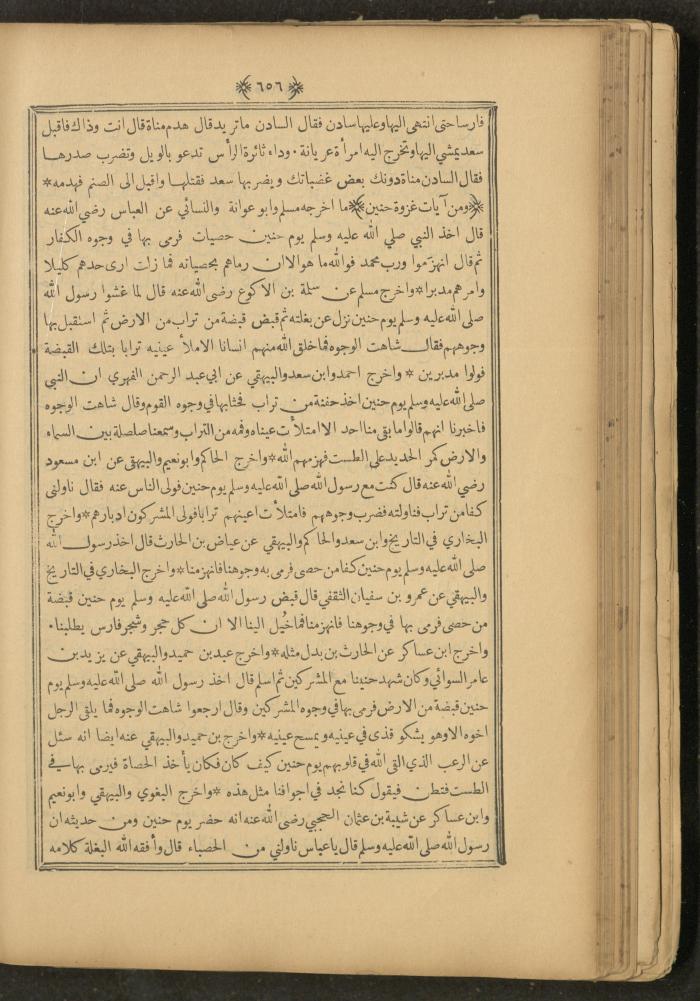 ٦٥٦
فارسا حتى انتهى اليها وعليها سادن فقال السادن ماتريد قال هدم مناة قال انت وذاك فاقبل
سعد يمشي اليها وتخرج اليه امرأة عريانة • وداء ثائرة الرأس تدعو بالويل وتضرب صدرها
فقال السادن مناة دونك بعض غضباتك ويضربها سعد فقتلها واقبل الى الصنم فهدمه *
ومن آيات غزوة حنين ما اخرجه مسلم وابوعوانة والنسائي عن العباس رضي الله عنه
قال اخذ النبي صلى الله عليه وسلم يوم حنين حصيات فرمى بها في وجوه الكفار
ثم قال انهزموا ورب محمد فوالله ما هو الا ان رماهم بحصياته فما زلت ارى حدهم كليلا
وامرهم مدبرا * واخرج مسلم عن سلمة بن الاكوع رضى الله عنه قال لما غشوا رسول الله
صلى الله عليه وسلم يوم حنين نزل عن بغلته ثم قبض قبضة من تراب من الارض ثم استقبل بها
وجوههم فقال شاهت الوجوه فما خلق الله منهم انسانا الاملأ عينيه ترابا بتلك القبضة
فولوا مدبرين * واخرج احمد وابن سعد والبيهقي عن ابي عبد الرحمن الفهري ان النبي
صلى الله عليه وسلم يوم حنين اخذ حفنة من تراب فحثا بها في وجوه القوم وقال شاهت الوجوه
فاخبرنا انهم قالوا ما بقى منا احد الا امتلأت عيناه وفمه من التراب وسمعنا صلصلة بين السماء
والارض كمر الحديد على الطست فهزمهم الله * واخرج الحاكم وابونعيم والبيهقى عن ابن مسعود
رضي الله عنه قال كنت مع رسول الله صلى الله عليه وسلم يوم حنين فولى الناس عنه فقال ناولني
كفا من تراب فناولته فضرب وجوههم فامتلأت اعينهم ترابا فولى المشركون ادبارهم * واخرج
البخاري في التاريخ وابن سعد والحاكم والبيهقي عن عياض بن الحارث قال اخذ رسول الله
صلى الله عليه وسلم يوم حنين كفا من حصى فرمى به وجوهنا فانهزمنا * واخرج البخاري في التاريخ
والبيهقي عن عمرو بن سفيان الثقفي قال قبض رسول الله صلى الله عليه وسلم يوم حنين قبضة
من حصى فرمى بها في وجوهنا فانهزمنا فما خُيل الينا الا ان كل حجر وشجر فارس يطلبنا •
واخرج ابن عساكر عن الحارث بن بدل مثله * واخرج عبد بن حميد والبيهقي عن يزيد بن
عامر السوائي وكان شهد حنينا مع المشركين ثم اسلم قال اخذ رسول الله صلى الله عليه وسلم يوم
حنين قبضة من الارض فرمى بها في وجوه المشركين وقال ارجعوا شاهت الوجوه فما يلقى الرجل
اخوه الا وهو يشكو قذى في عينيه ويمسح عينيه * واخرج بن حميد والبيهقي عنه ايضا انه سئل
عن الرعب الذي القى الله في قلوبهم يوم حنين كيف كان فكان يأخذ الحصاة فيرمى بها في
الطست فتطن فيقول كنا نجد في اجوافنا مثل هذه * واخرج البغوي والبيهقي وابونعيم
وابن عساكر عن شيبة بن عثمان الحجبي رضى الله عنه انه حضر يوم حنين ومن حديثه ان
رسول الله صلى الله عليه وسلم قال يا عباس ناولني من الحصباء قال وأفقه الله البغلة كلامه